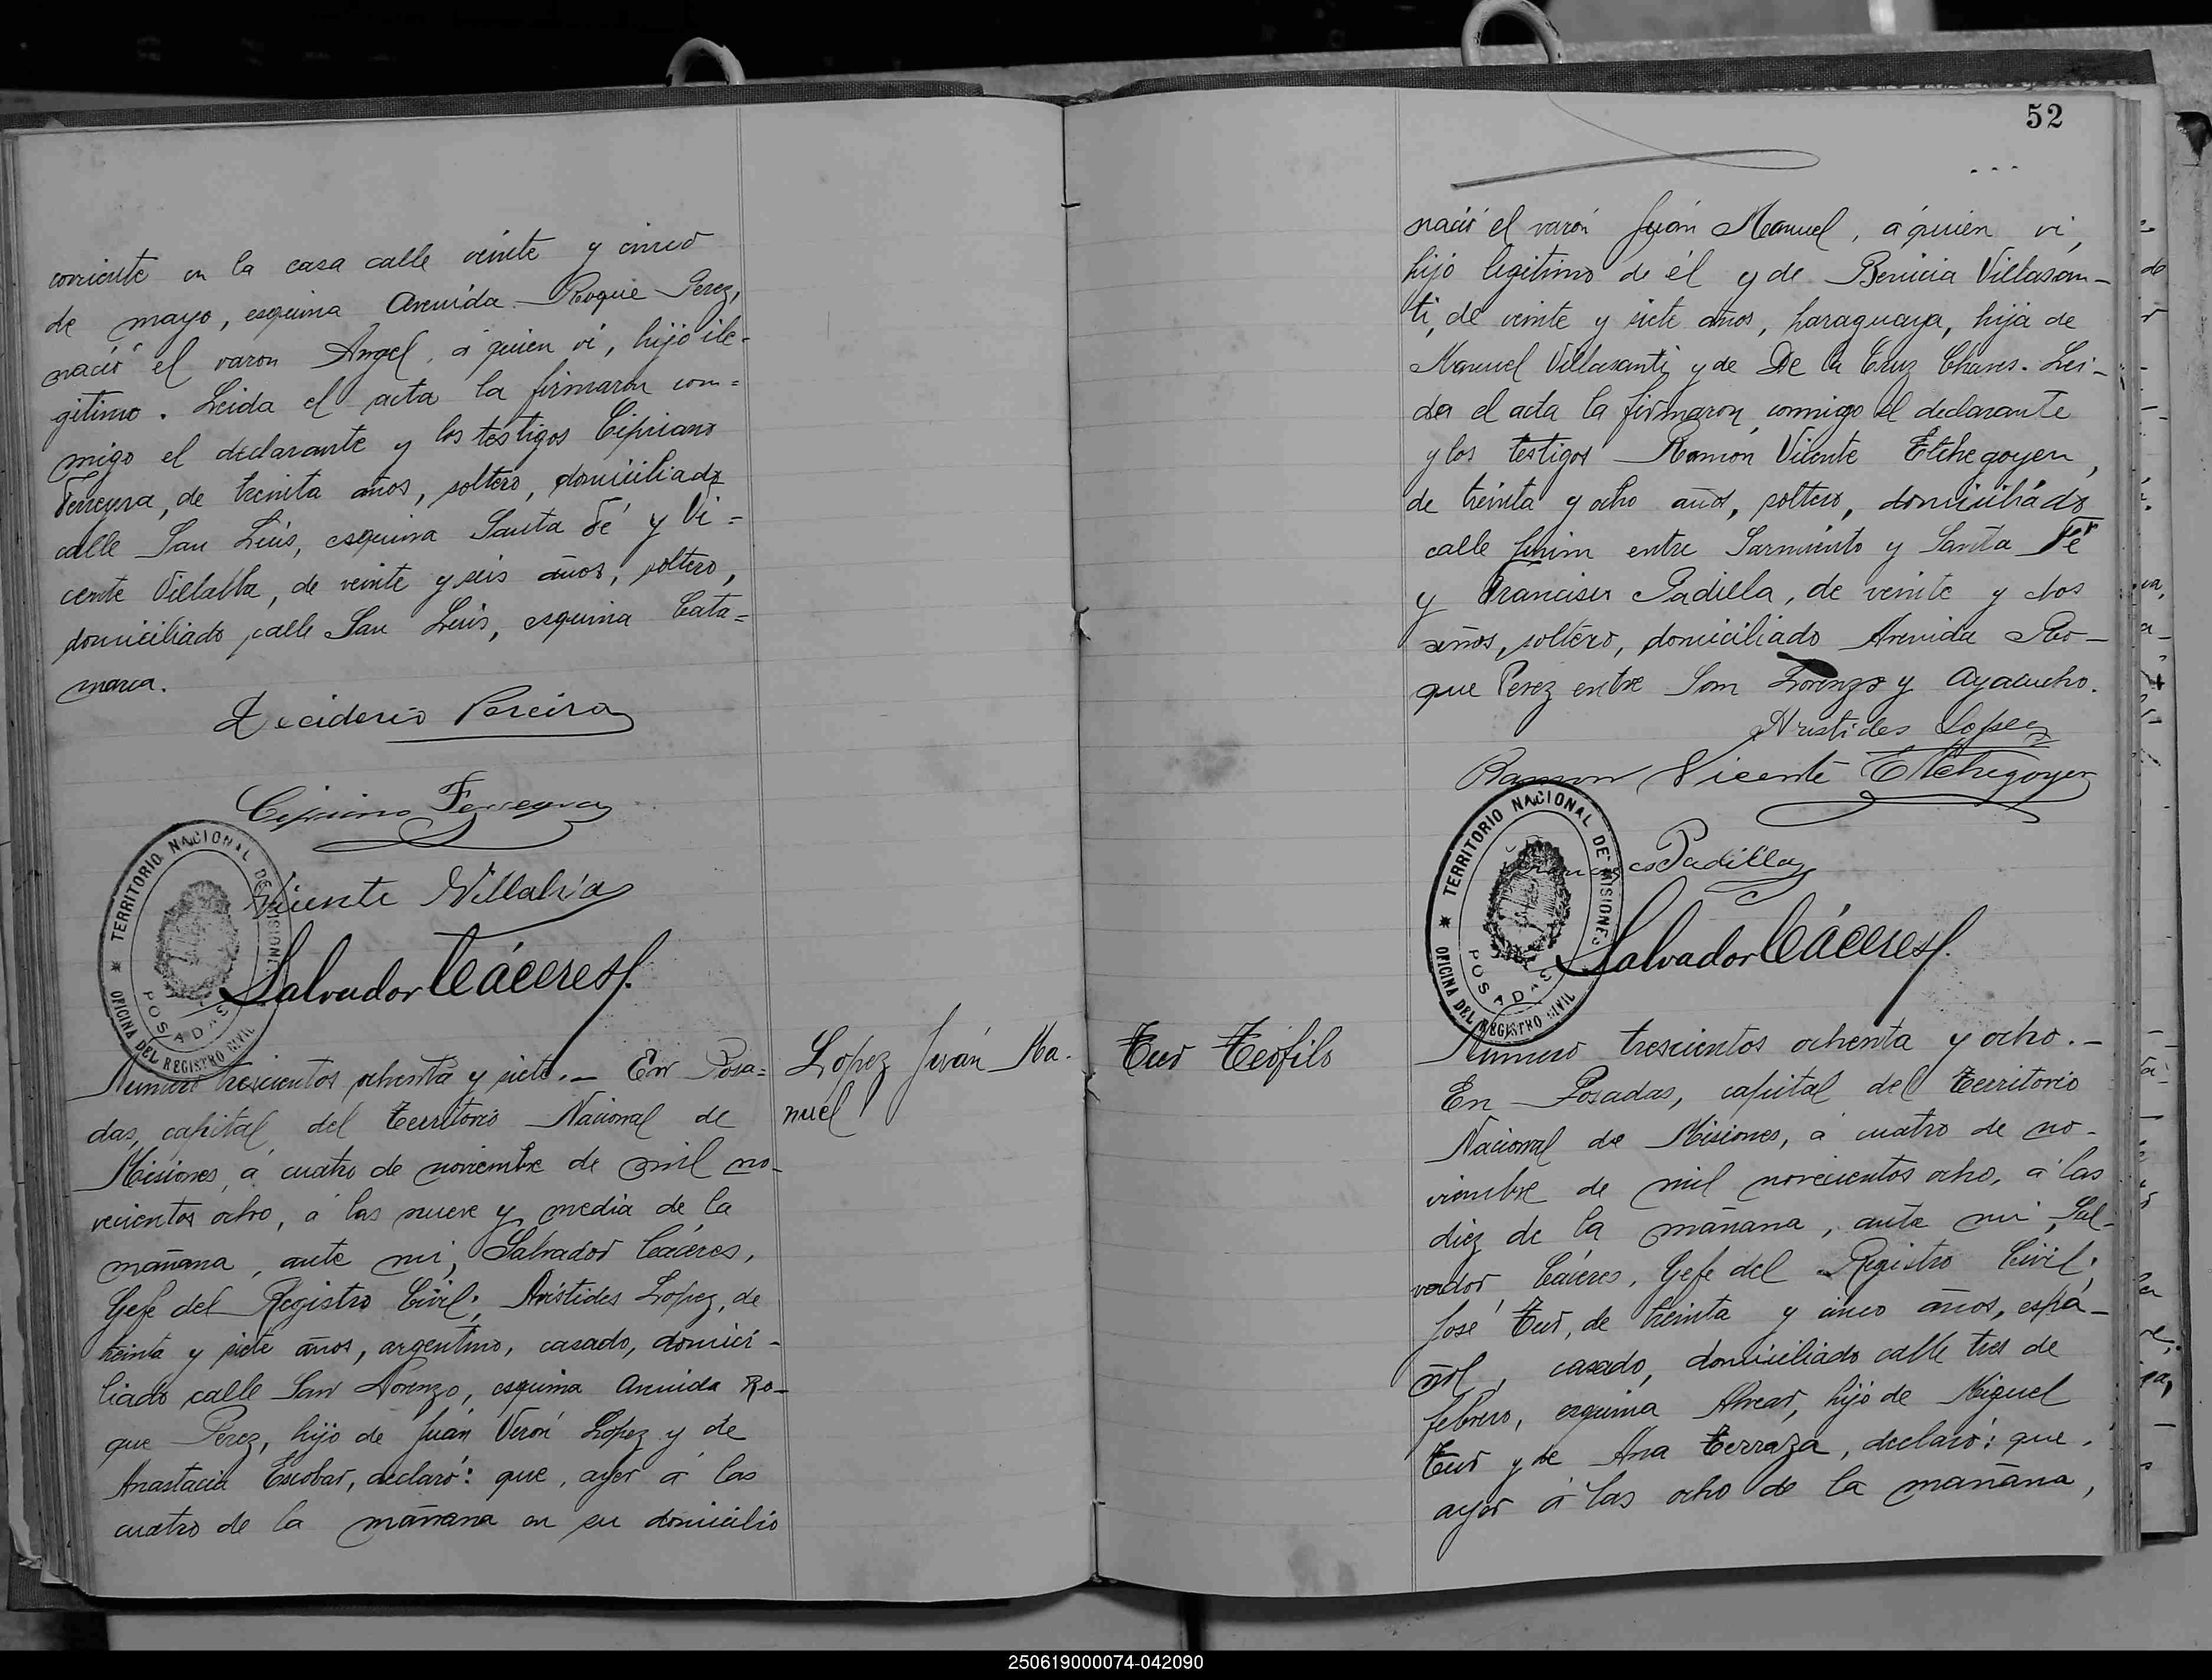 corriente en la casa calle veinte y cinco
de mayo, esquina Avenida Roque Perez,
nació el varon Angel, á quien vi, hijo ile-
gitimo. Leida el acta la firmaron con=
migo el declarante y los testigos Cipriano
Ferreyra, de treinta años, soltero, domiciliado
calle San Luis, esquina Santa Fé y Vi=
cente Villalba, de veinte y seis años, soltero,
domiciliado calle San Luis, esquina Cata=
marca.
Deciderio Pereira
Cipriano Ferreyra
Vicente Villalva
Salvador Cáceres
TERRITORIO NACIONAL DE MISIONES
OFICINA DEL REGISTRO CIVIL
POSADAS
Numero trescientos ochenta y siete.- En Posa=
das, capital del Territorio Nacional de
Misiones, á cuatro de noviembre de mil no-
vecientos ocho, á las nueve y media de la
mañana, ante mi, Salvador Cáceres,
Gefe del Registro Civil; Aristides Lopez, de
treinta y siete años, argentino, casado, domici-
liado calle San Lorenzo, esquina Avenida Ro-
que Perez, hijo de Juán Verón Lopez y de
Anastacia Escobar, declaró: que, ayer á las
cuatro de la mañana en su domicilio
Lopez Juán Ma.
nuel
52
nació el varón Juán Manuel, á quien vi,
hijo legitimo de él y de Benicia Villasan-
ti, de veinte y siete años, paraguaya, hija de
Manuel Villasanti y de De la Cruz Chaves. Lei-
da el acta la firmaron conmigo el declarante
y los testigos Ramón Vicente Etchegoyen,
de treinta y ocho años, soltero, domiciliado
calle Junin entre Sarmiento y Santa Fé
y Francisco Padilla, de veinte y dos
años, soltero, domiciliado Avenida Ro-
que Perez entre San Lorenzo y Ayacucho.
Aristides Lopez
Ramon Vicente Etchegoyen
Francisco Padilla
Salvador Cáceres
TERRITORIO NACIONAL DE MISIONES
OFICINA DEL REGISTRO CIVIL
POSADAS
Tur Teofilo
Numero trescientos ochenta y ocho.-
En Posadas, capital del Territorio
Nacional de Misiones, á cuatro de no-
viembre de mil novecientos ocho, á las
diez de la mañana, ante mi, Sal-
vador Cáceres, Gefe del Registro Civil;
José Tur, de treinta y cinco años, espa-
ñol, casado, domiciliado calle tres de
febrero, esquina Alvear, hijo de Miguel
Tur y de Ana Terraza, declaró: que,
ayer á las ocho de la mañana,
250619000074-042090